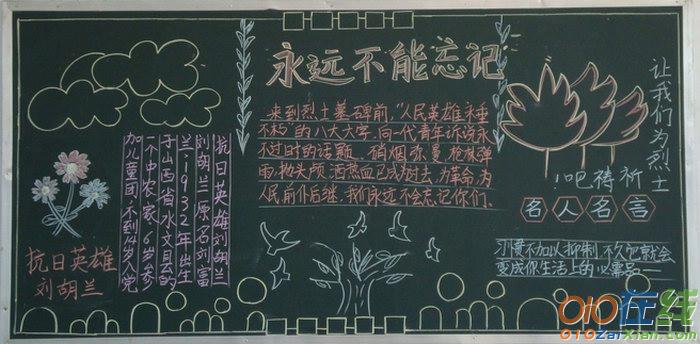 永远不能忘记
来到烈士墓碑前,“人民英雄永垂
不朽”的八大大字,向一代青年诉说永
不过时的话题。硝烟弥漫,枪林弹
雨,抛头颅,洒热血已成过去,为革命,为
人民,前仆后继,我们永远不会忘记你们。
抗日英雄刘胡兰
刘胡兰原名刘富
兰,1932年出生
于山西省水文县的
一个中农家,8岁参
加儿童团,不到14岁入党
抗日英雄
刘胡兰
让我们为烈士
祈祷吧!
名人名言
习惯不加以抑制 不久它就会
变成你生活上的必需品——
010在线
010ZaiXian.com